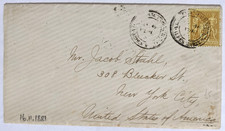 Mr. Jacob Stahl,
309 Bleecker St.
New York City,
United States of America